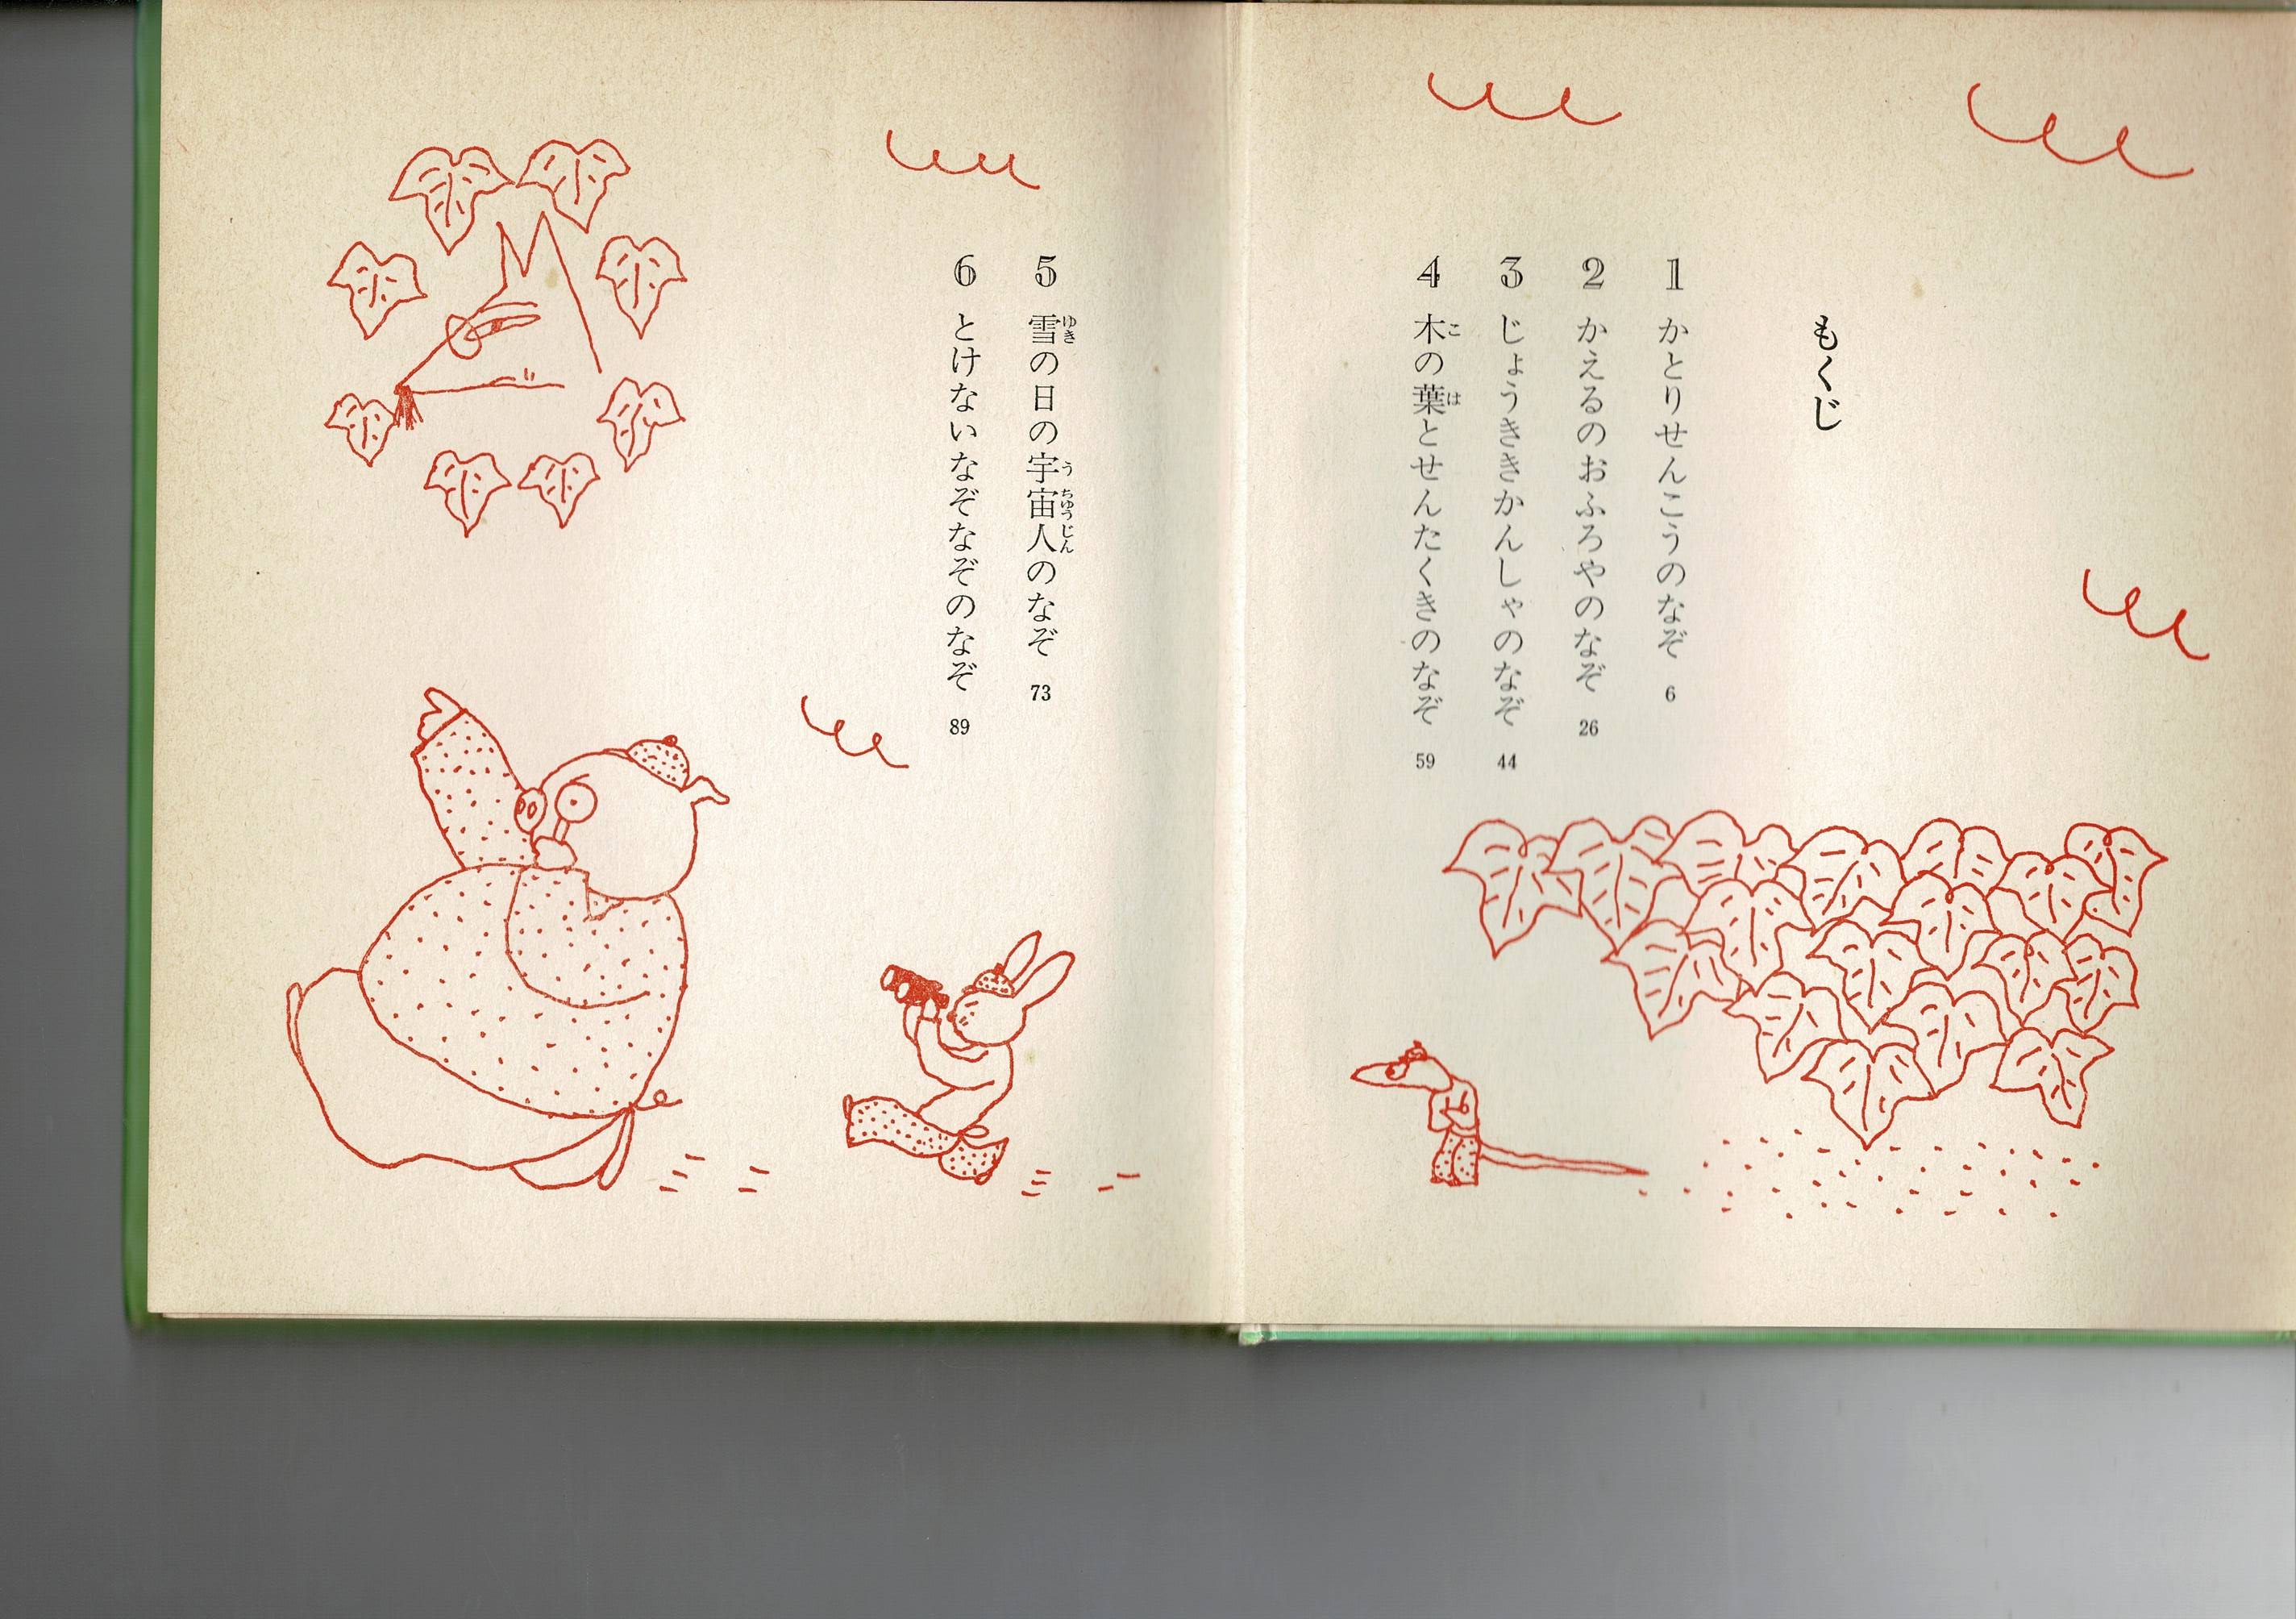 もくじ
1 かとりせんこうのなぞ 6
2 かえるのおふろやのなぞ 26
3 じょうききかんしゃのなぞ 44
4 木の葉とせんたくきのなぞ 59
こ は
5 雪の日の宇宙人のなぞ 73
ゆき う ちゅう じん
6 とけないなぞなぞのなぞ 89